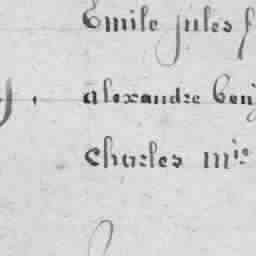 Emile jules f
alexandre Benj
Charles mie